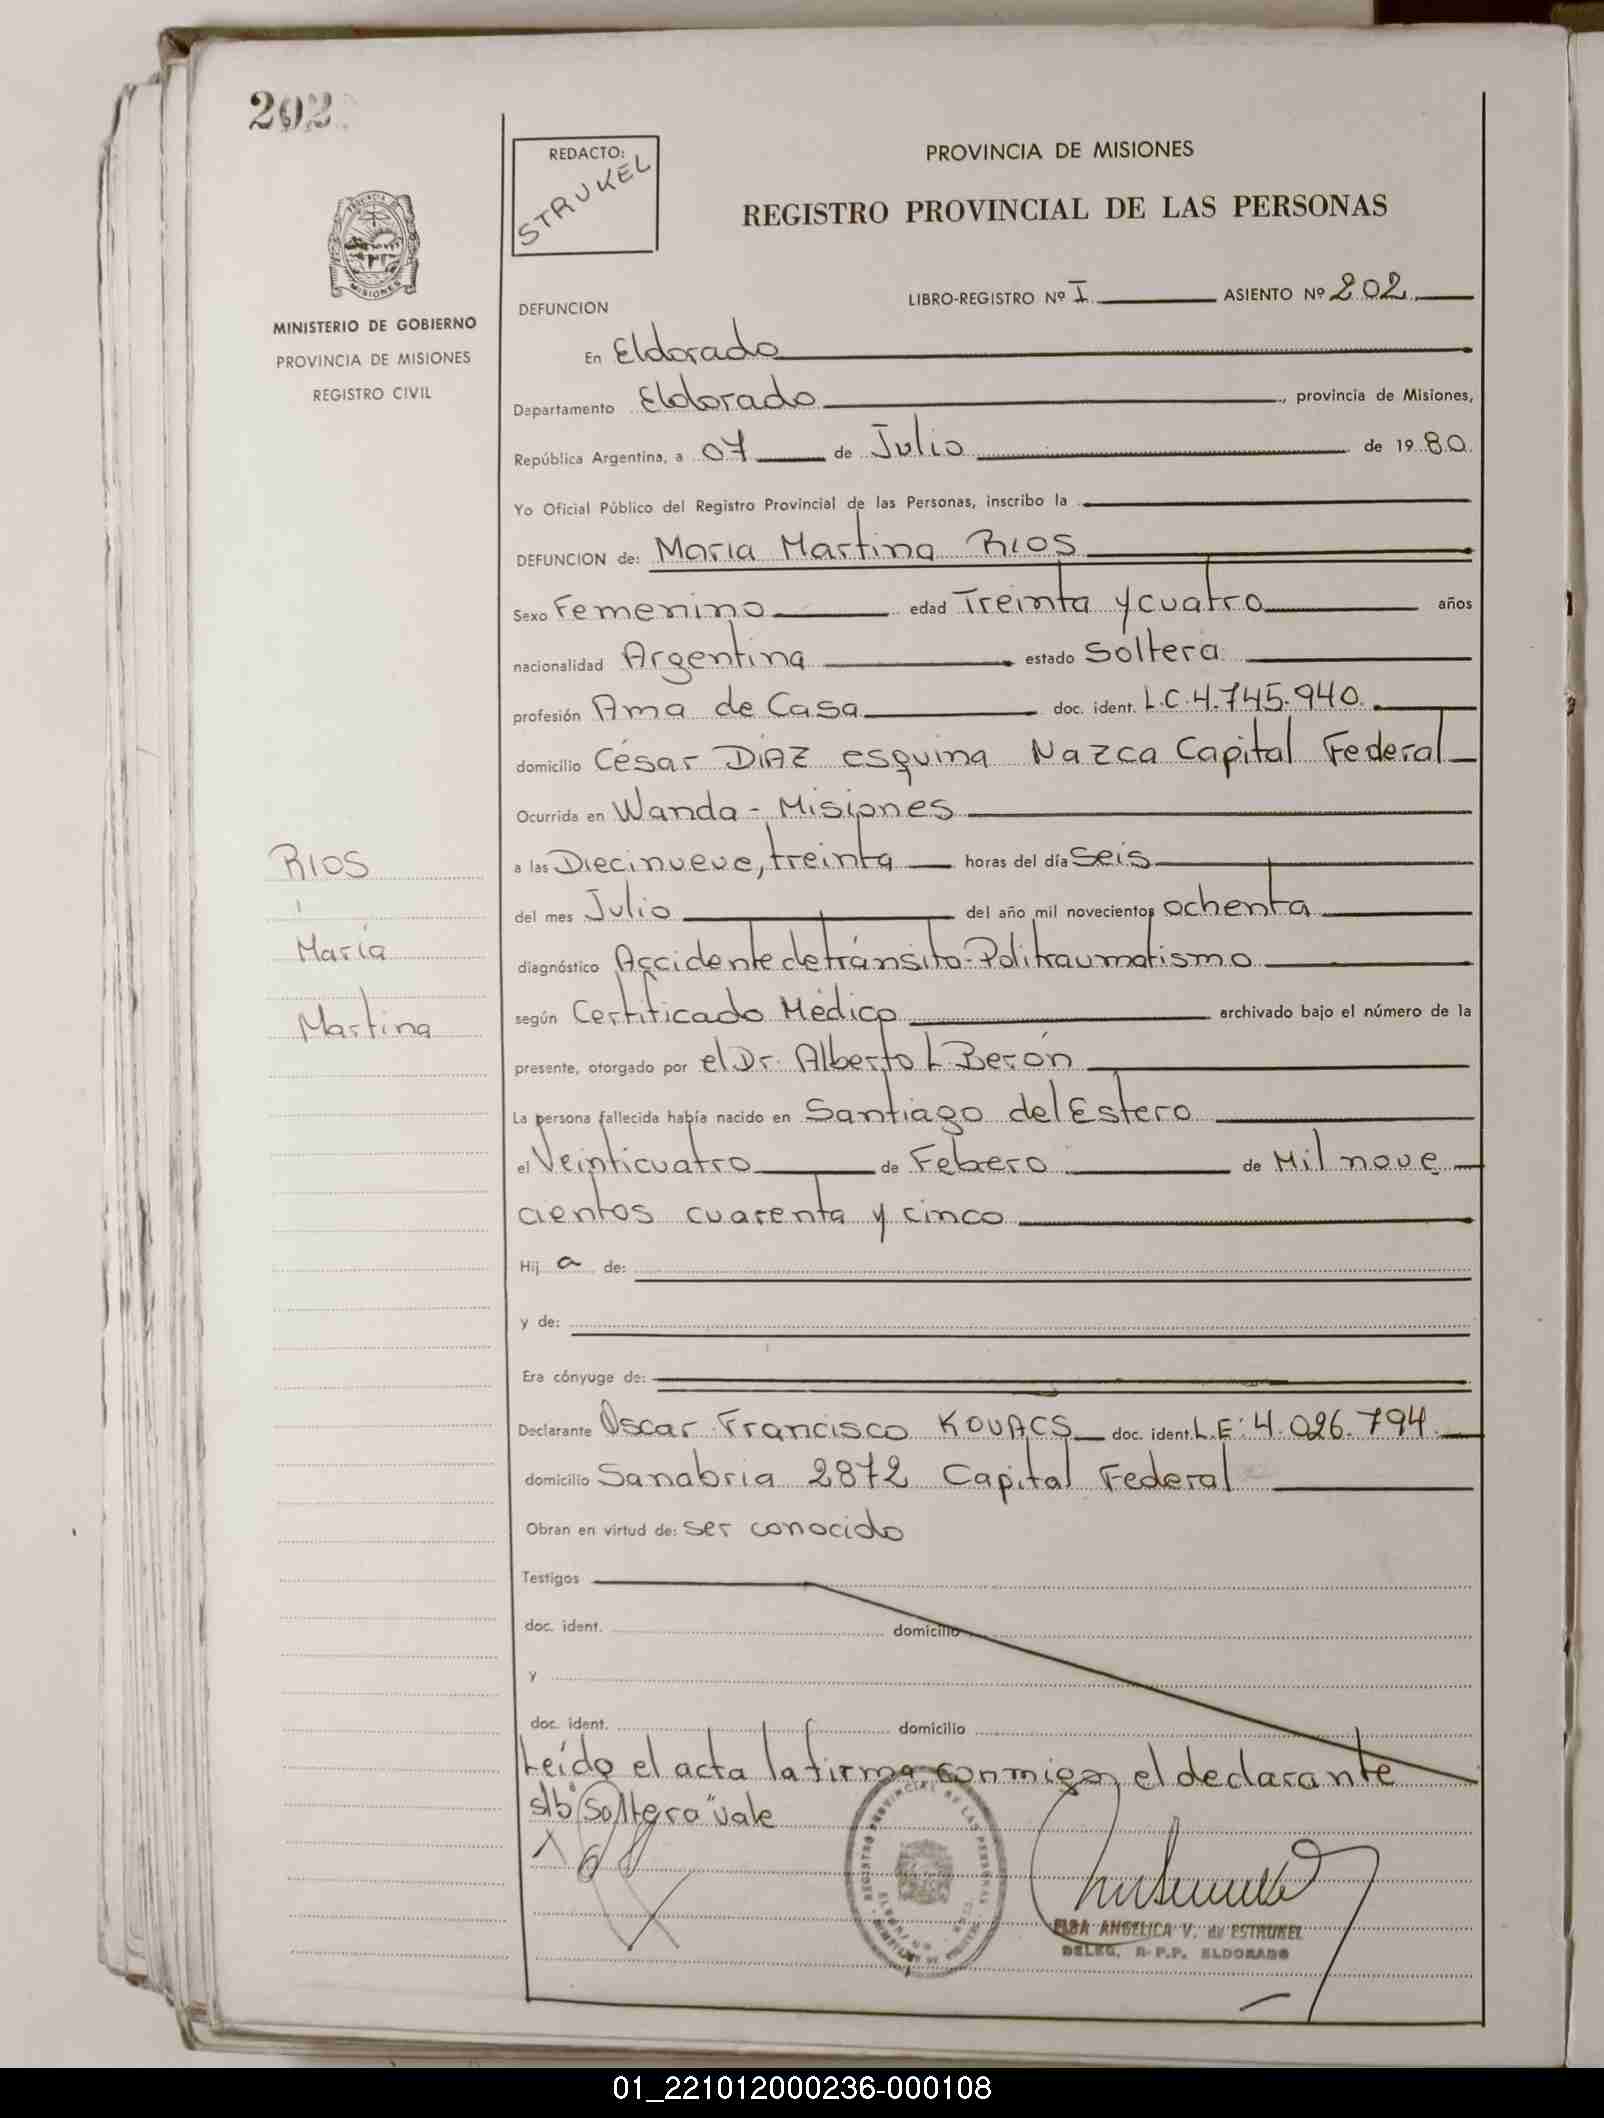 202
REDACTO:
STRUKEL
PROVINCIA DE MISIONES
REGISTRO PROVINCIAL DE LAS PERSONAS
MISIONES
MINISTERIO DE GOBIERNO
PROVINCIA DE MISIONES
REGISTRO CIVIL
DEFUNCION
LIBRO-REGISTRO Nº I ASIENTO Nº 202
En Eldorado
Departamento Eldorado, provincia de Misiones,
República Argentina, a 07 de Julio de 1980
Yo Oficial Público del Registro Provincial de las Personas, inscribo la
DEFUNCION de: Maria Martina RIOS
Sexo Femenino edad Treinta y cuatro años
nacionalidad Argentina estado Soltera
profesión Ama de Casa doc. ident. L.C.4.745.940.
domicilio César DIAZ esquina Nazca Capital Federal
Ocurrida en Wanda - Misiones
a las Diecinueve, treinta horas del día Seis
del mes Julio del año mil novecientos ochenta
diagnóstico Accidente de tránsito - Politraumatismo
según Certificado Médico archivado bajo el número de la
presente, otorgado por el Dr. Alberto L. Berón
La persona fallecida había nacido en Santiago del Estero
el Veinticuatro de Febrero de Mil nove
cientos cuarenta y cinco
Hij a de:
y de:
Era cónyuge de:
Declarante Oscar Francisco KOVACS doc. ident. L.E: 4.026.794.
domicilio Sanabria 2872 Capital Federal
Obran en virtud de: ser conocido
Testigos
doc. ident. domicilio
y
doc. ident. domicilio
Leído el acta la firma conmigo, el declarante
s/b "Soltera" vale
RIOS
María
Martina
ELSA ANGELICA V. de ESTRUKEL
DELEG. R.P.P. ELDORADO
01_221012000236-000108